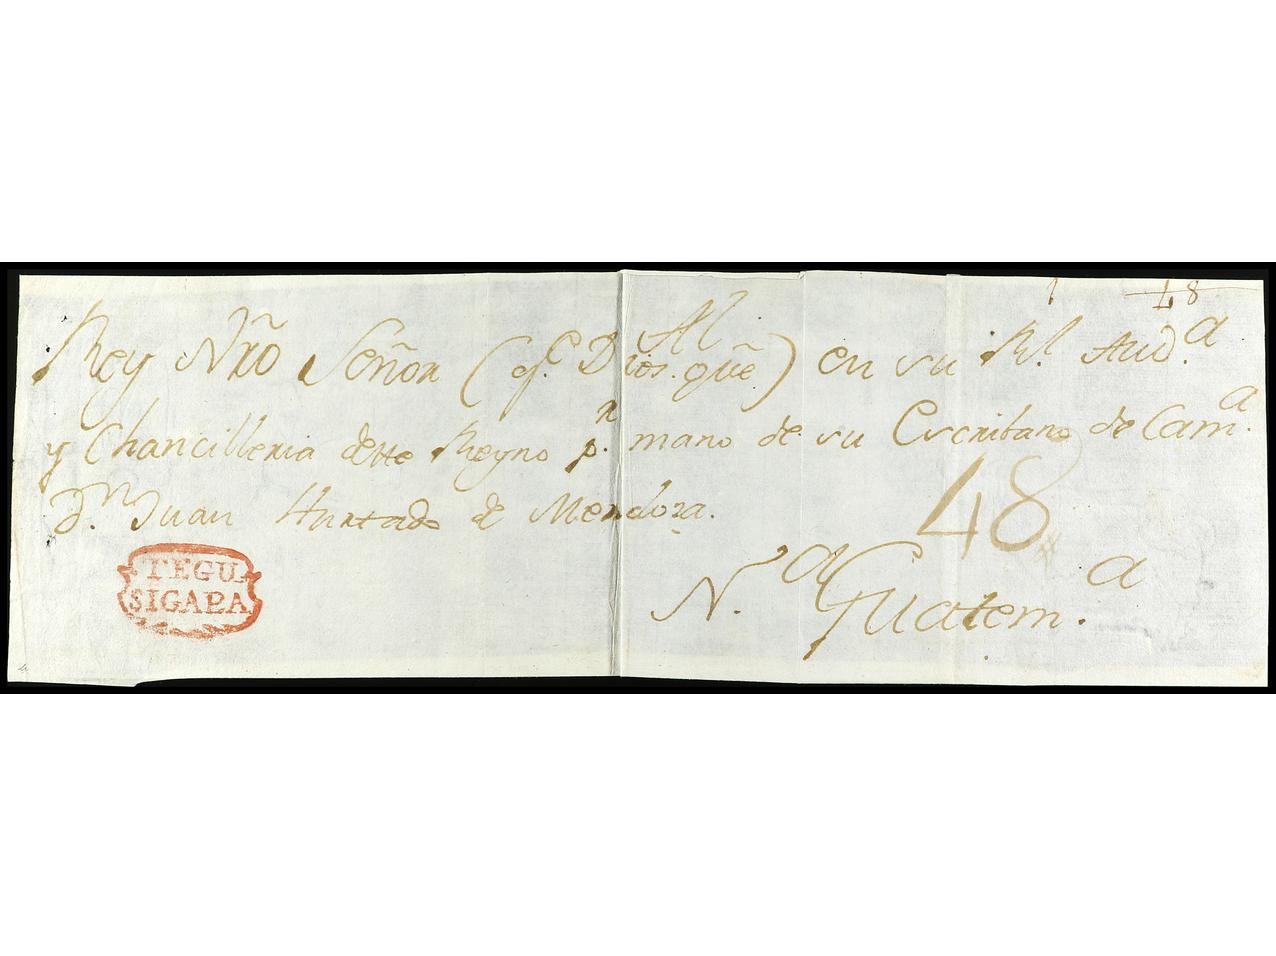 48
Al
Rey Nrõ Señor (q.e Dios. güe) en su Rl. Aud.a
y Chancilleria deste Reyno p.r mano de su Escribano de Cam.a
Dn. Juan Hurtado de Mendoza.
48
TEGU
SIGAPA
N.a Guatem.a